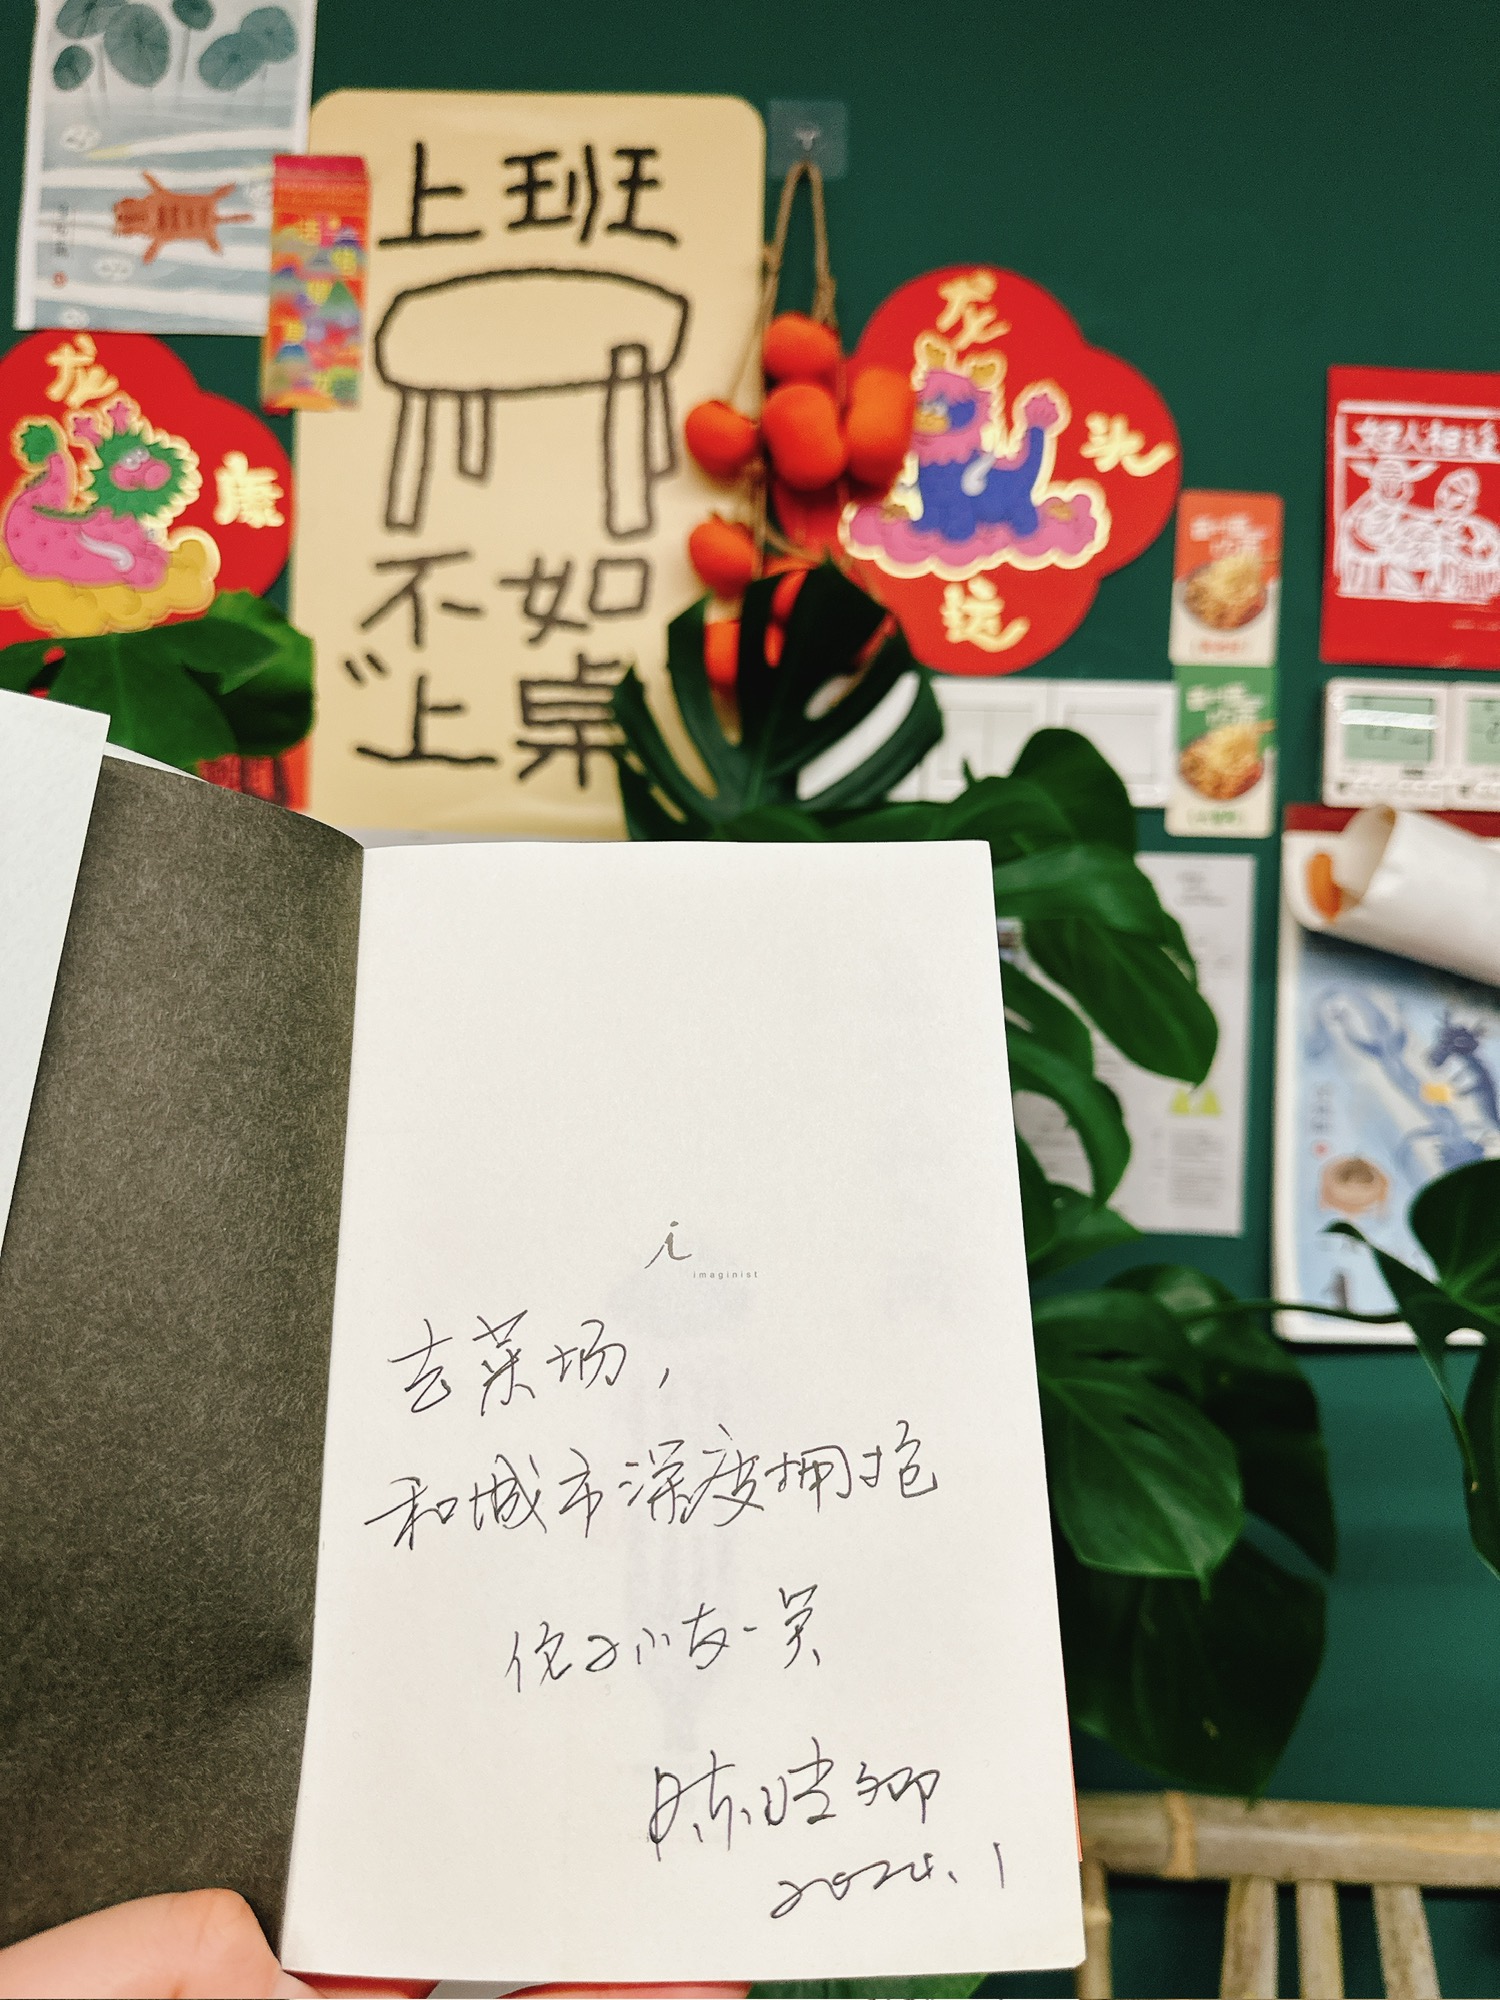 上班
不如
“上桌
龙
康
龙
头
运
好人相逢
i
imaginist
去菜场，
和城市深度拥抱
陈晓卿
2024.1